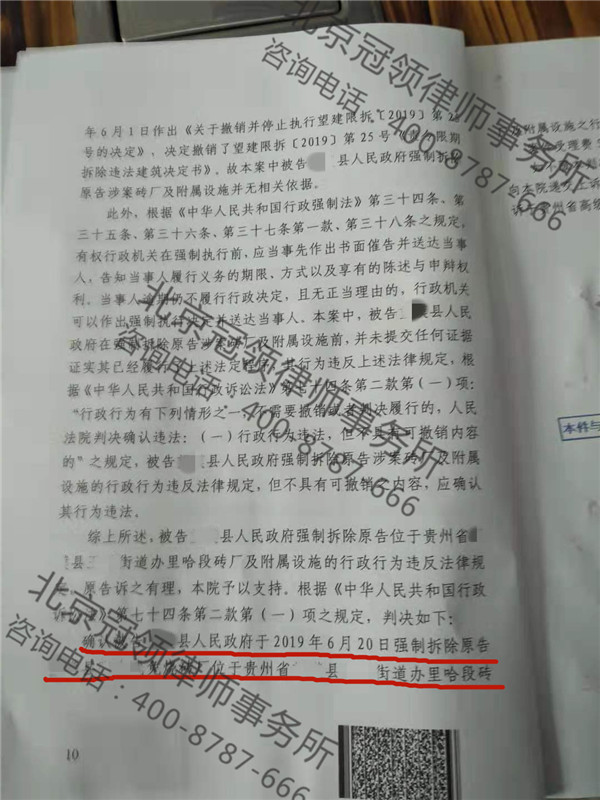 年6月1日作出《关于撤销并停止执行望建限拆〔2019〕第2
号的决定》，决定撤销了望建限拆〔2019〕第25号《责令限期
拆除违法建筑决定书》。故本案中被告 县人民政府强制拆除
原告涉案砖厂及附属设施并无相关依据。
此外，根据《中华人民共和国行政强制法》第三十四条、第
三十五条、第三十六条、第三十七条第一款、第三十八条之规定，
有权行政机关在强制执行前，应当事先作出书面催告并送达当事
人，告知当事人履行义务的期限、方式以及享有的陈述与申辩权
利。当事人逾期仍不履行行政决定，且无正当理由的，行政机关
可以作出强制执行决定并送达当事人。本案中，被告 县人民
政府在强制拆除原告涉案砖厂及附属设施前，并未提交任何证据
证实其已经履行上述法定程序，其行为违反上述法律规定，根
据《中华人民共和国行政诉讼法》第七十四条第二款第（一）项：
“行政行为有下列情形之一，不需要撤销或者判决履行的，人民
法院判决确认违法：（一）行政行为违法，但不具有可撤销内容
的”之规定，被告 县人民政府强制拆除原告涉案砖厂及附属
设施的行政行为违反法律规定，但不具有可撤销之内容，应确认
其行为违法。
综上所述，被告 县人民政府强制拆除原告位于贵州省
县 街道办里哈段砖厂及附属设施的行政行为违反法律规
定，原告诉之有理，本院予以支持。根据《中华人民共和国行政
诉讼法》第七十四条第二款第（一）项之规定，判决如下：
确认被告 县人民政府于2019年6月20日强制拆除原告
位于贵州省 县 街道办里哈段砖
10
附属设施之行
不服本
向本院递交上诉
诉于贵州省高级
本件与
北京冠领律师事务所
咨询电话：400-8787-666
北京冠领律师事务所
咨询电话：400-8787-666
北京冠领律师事务所
咨询电话：400-8787-666